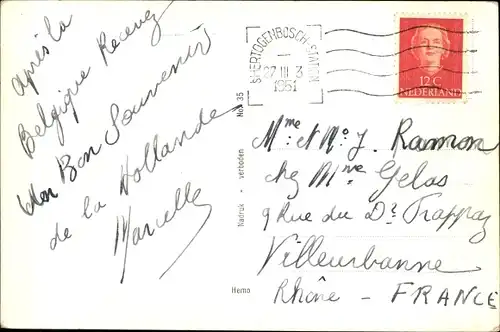 après la
Belgique Recevez
Un Bon Souvenir
de la Hollande
Marcelle
Nadruk - verboden No. 35
Hemo
'S-HERTOGENBOSCH-STATION
27 III 3
1951
12 C
NEDERLAND
Mme et Mo J. Ramon
chez Mme Gelas
9 Rue du Dr Frappaz
Villeurbanne
Rhône - FRANCE